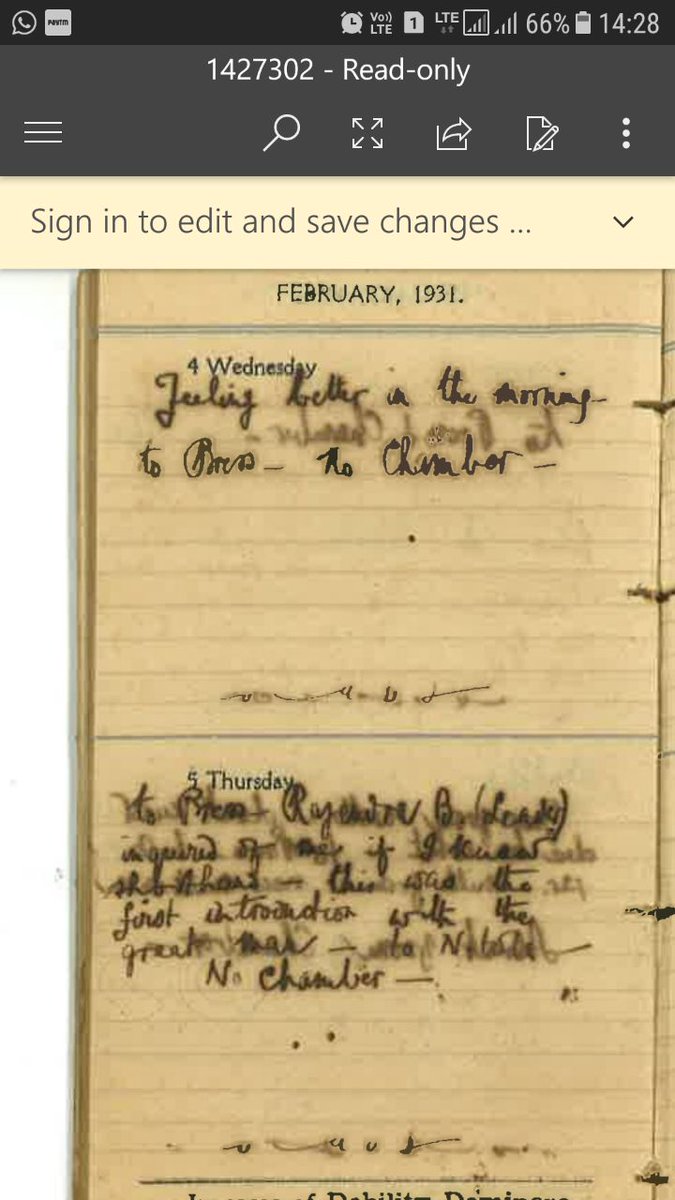 Paytm
Vo))
LTE
1
LTE
66%
14:28
1427302 - Read-only
Sign in to edit and save changes ...
FEBRUARY, 1931.
4 Wednesday
Feeling better in the morning-
to Press - No Chamber -
5 Thursday
to Press Rajendra B. (Leader)
inquired of me if I knew
this was the
first introduction with the
great man - to
No Chamber -